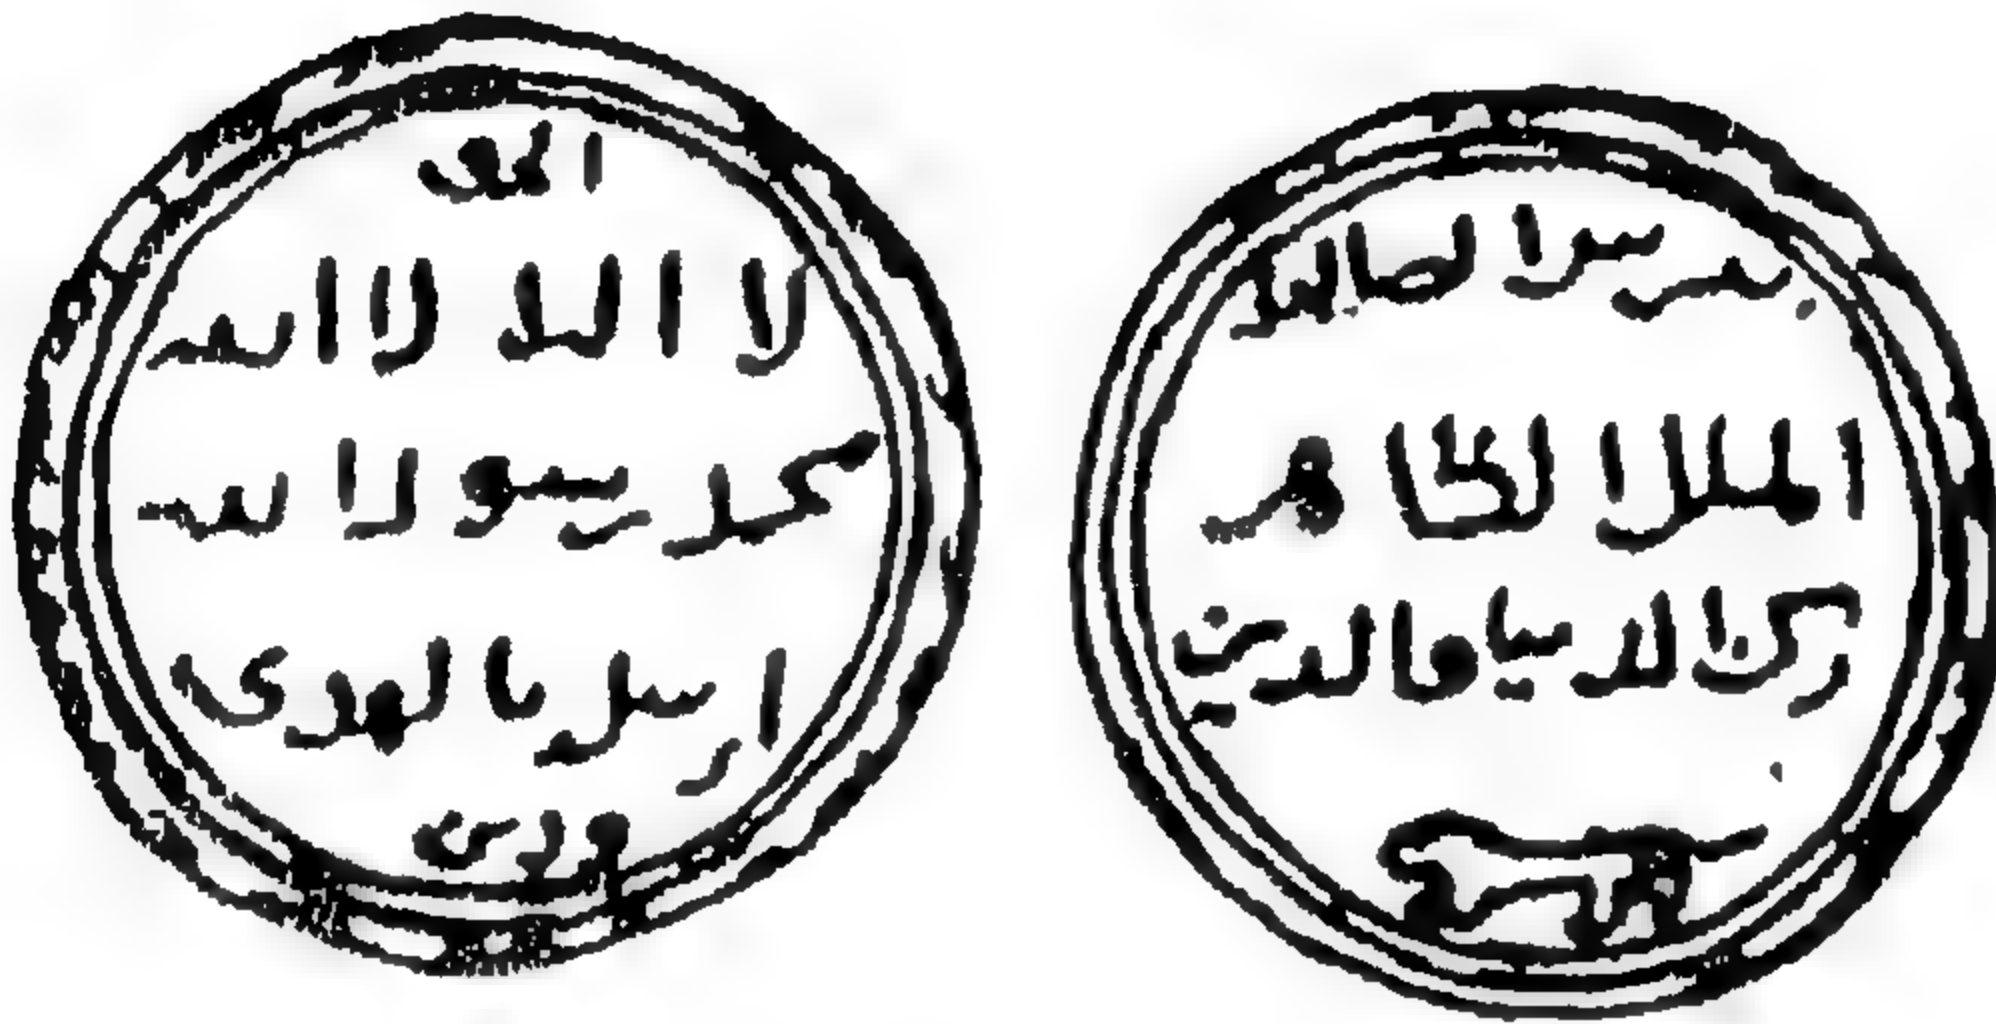 الحق
لا اله الا الله
محمد رسول الله
ارسله بالهدى
ودين
بيبرس الصالحي
الملك الظاهر
ركن الدنيا والدين